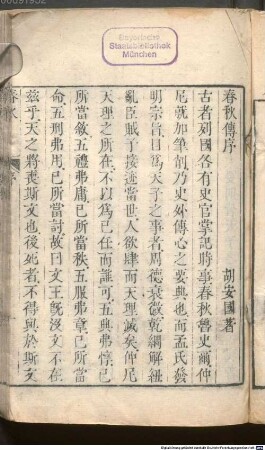 Bayerische
Staatsbibliothek
München
春秋傳序
胡安國著
古者列國各有史官掌記時事春秋魯史爾仲
尼就加筆削乃史外傳心之要典也而孟氏發
明宗旨目爲天子之事者周德衰微乾綱解紐
亂臣賊子接迹當世人欲肆而天理滅矣仲尼
天理之所在不以爲己任而誰可五典弗惇己
所當敘五禮弗庸己所當秩五服弗章己所當
命五刑弗用己所當討故曰文王旣沒文不在
茲乎天之將喪斯文也後死者不得與於斯文